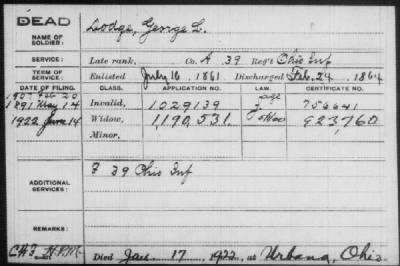 DEAD
NAME OF SOLDIER: Dodge, George L.
SERVICE: Late rank, Co. A 39 Reg't Ohio Inf
TERM OF SERVICE: Enlisted July 16, 1861 Discharged Feb. 24, 1864
DATE OF FILING. CLASS. APPLICATION NO. LAW. CERTIFICATE NO.
1907 Feb 20 age
1891 May 14 Invalid, 1029139 756641
1922 June 14 Widow, 1,190,531. 923,760
Minor,
ADDITIONAL SERVICES: F 39 Ohio Inf
REMARKS:
Died Jan. 17, 1922, at Urbana, Ohio